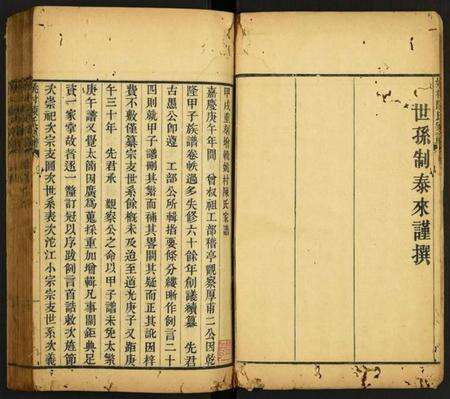 世孫制泰來謹撰
甲戌重刻檜幹姚村陳氏家譜
嘉慶庚午年間 曾叔祖工部稽亭觀察厚甫二公因乾
隆甲子族譜卷帙過多失修六十餘年創議續纂 先君
古愚公卽遵 工部公所輯指要條分縷晰作例言二十
四則就甲子譜刪其繁而補其畧闕其疑而正其訛因梓
費不敷僅纂宗支世系餘概未及迨至道光庚子又距庚
午三十年 先君承 觀察公之命以甲子譜未免太繁
庚午譜又覺太簡因廣爲蒐採重加增輯凡事關鉅典足
資一家掌故者逐一釐訂冠以序跋例言首誥敕次旌節
次崇祀次宗支圖次世系表次沱江小宗宗支世系次義